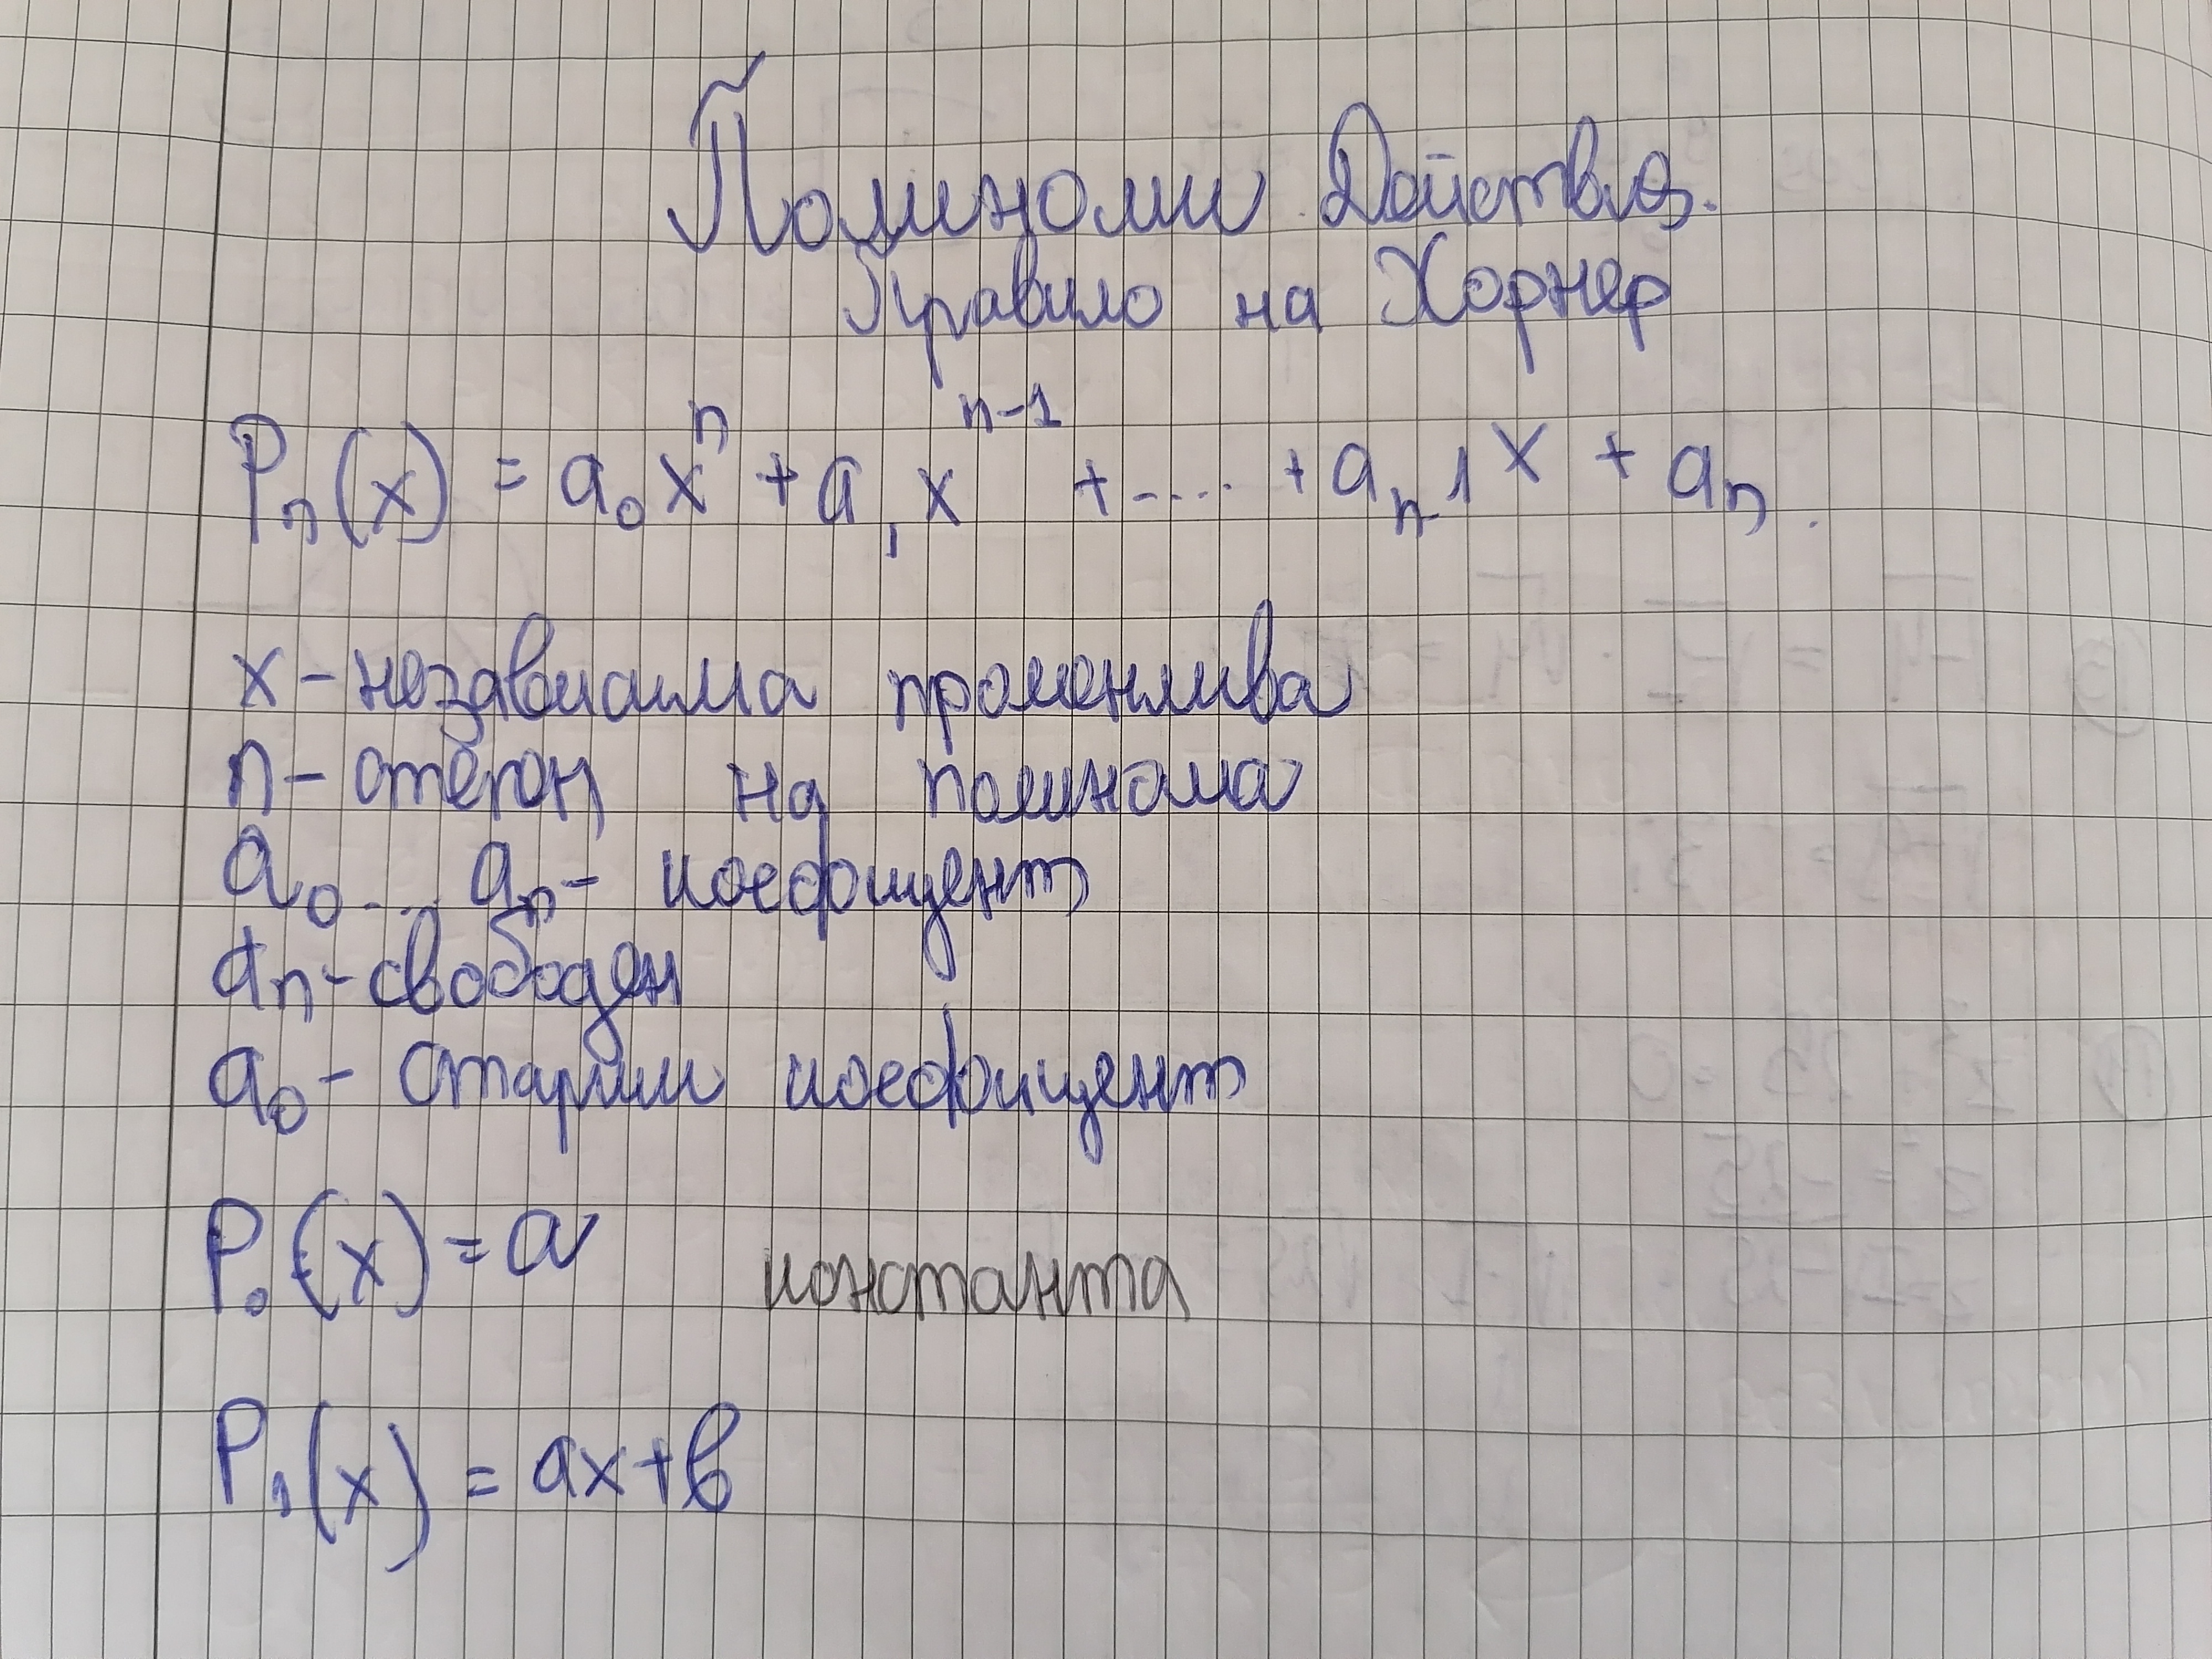 Полиноми Действия.
Правило на Хорнер
Pₙ(x) = a₀xⁿ + a₁xⁿ⁻¹ + .... + aₙ₋₁x + aₙ.
x – независима променлива
n – степен на полинома
a₀...aₙ – коефициент
aₙ – свободен
a₀ – старши коефициент
P₀(x) = a константа
P₁(x) = ax+b